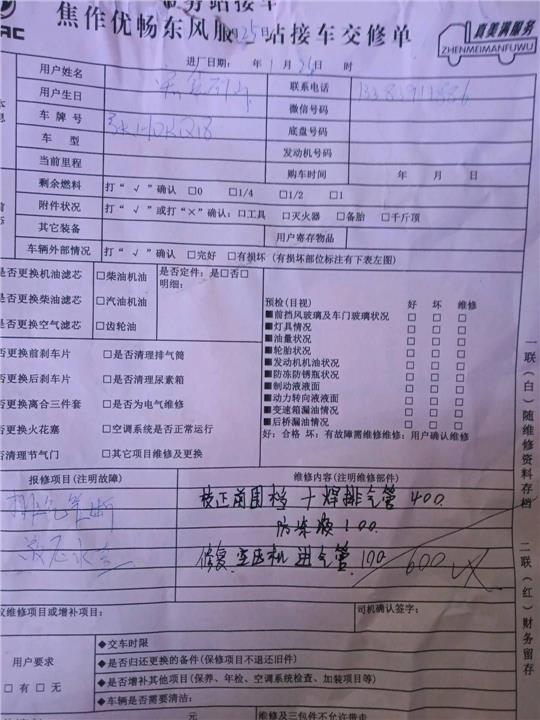 务站接车
焦作优畅东风服务站接车交修单
真美满服务
ZHENMEIMANFUWU
进厂日期: 年 1 月 25 日 时
用户姓名
联系电话
用户生日
微信号码
车 牌 号
底盘号码
车 型
发动机号码
当前里程
购车时间 年 月 日
剩余燃料 打“ √ ”确认 □0 □1/4 □1/2 □1
附件状况 打“ √ ”或打“×”确认: 口工具 □灭火器 □备胎 □千斤顶
其它装备 用户寄存物品
车辆外部情况 打“ √ ”确认 □完好 □有损坏 (有损坏部位标注有下表左图)
是否更换机油滤芯 □柴油机油 是否定件: 是□否□
明细:
是否更换柴油滤芯 □汽油机油
是否更换空气滤芯 □齿轮油
预检(目视) 好 坏 维修
■前挡风玻璃及车门玻璃状况 □ □ □
■灯具情况 □ □ □
■油量状况 □ □ □
■轮胎状况 □ □ □
■发动机机油状况 □ □ □
■防冻防锈瓶状况 □ □ □
■制动液液面 □ □ □
■动力转向液液面 □ □ □
■变速箱漏油情况 □ □ □
■后桥漏油情况 □ □ □
好: 合格 坏: 有故障需维修维修: 用户确认维修
否更换前刹车片 □是否清理排气筒
否更换后刹车片 □是否清理尿素箱
否更换离合三件套 □是否为电气维修
否更换火花塞 □空调系统是否正常运行
否清理节气门 □其它项目维修及更换
报修项目(注明故障) 维修内容(注明维修部件)
排气管断
校正前围档 + 焊排气管 400.
防冻液 100.
修复空压机进气管. 100. 600
议维修项目或增补项目: 司机确认签字:
用户要求
□ 有 □ 无
◆交车时限
◆是否归还更换的备件(保修项目不退还旧件)
◆是否增补其他项目(保养、年检、空调系统检查、加装项目等)
◆车辆是否需要清洁:
元 维修及三包件不允许带走
一联(白)随维修资料存档
二联(红)财务留存